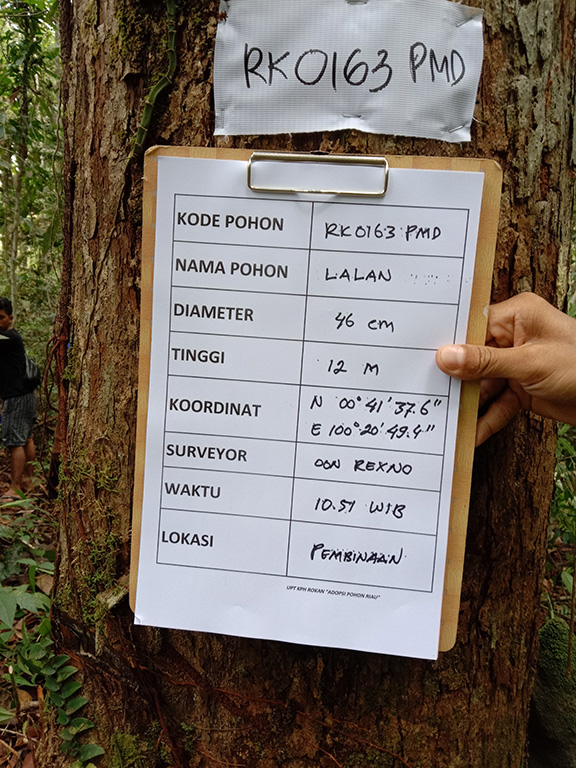 RK0163 PMD
KODE POHON RK0163 PMD
NAMA POHON LALAN
DIAMETER 46 cm
TINGGI 12 M
KOORDINAT N 00° 41' 37.6"
E 100° 20' 49.4"
SURVEYOR OON REXNO
WAKTU 10.51 WIB
LOKASI PEMBINAAN
UPT KPH ROKAN "ADOPSI POHON RIAU"